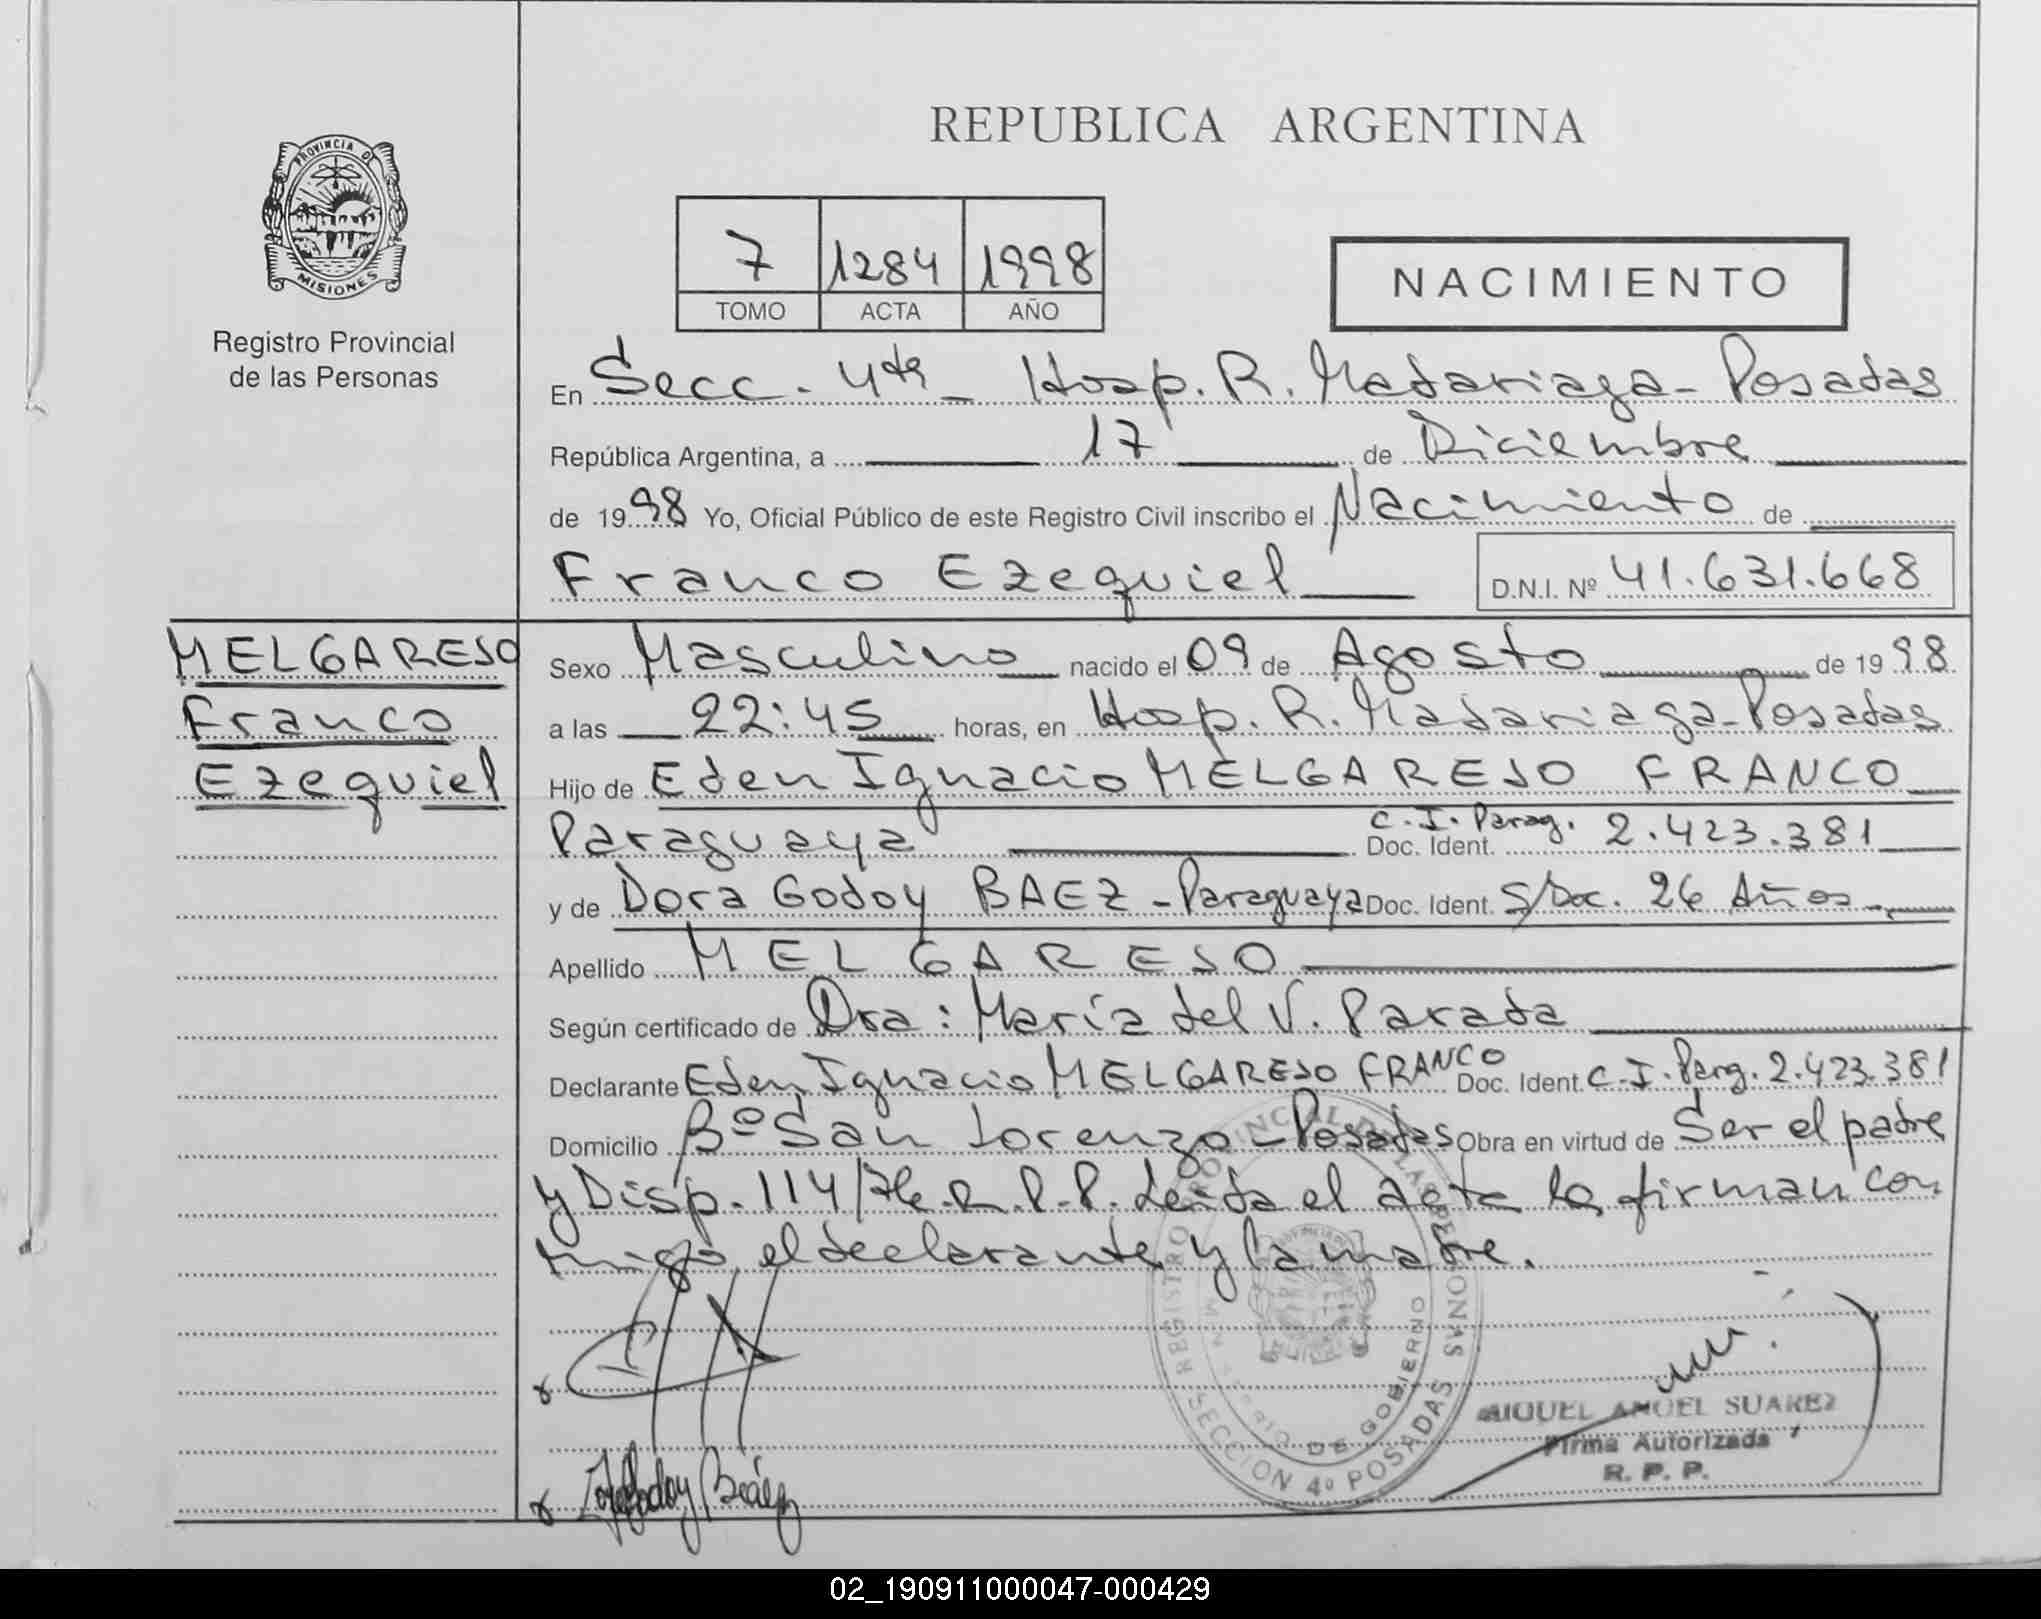 PROVINCIA DE
MISIONES
Registro Provincial
de las Personas
REPUBLICA ARGENTINA
7 1284 1998
TOMO ACTA AÑO
NACIMIENTO
En Secc. 4ta - Hosp. R. Madariaga - Posadas
República Argentina, a 17 de Diciembre
de 1998 Yo, Oficial Público de este Registro Civil inscribo el Nacimiento de
Franco Ezequiel D.N.I. Nº 41.631.668
MELGARESO
Franco
Ezequiel
Sexo Masculino nacido el 09 de Agosto de 1998
a las 22:45 horas, en Hosp. R. Madariaga - Posadas
Hijo de Eden Ignacio MELGARESO FRANCO
Paraguaya Doc. Ident. C.I. Parag. 2.423.381
y de Dora Godoy BAEZ - Paraguaya Doc. Ident. S/Doc. 26 Años.
Apellido MELGARESO
Según certificado de Dra: María del V. Parada
Declarante Eden Ignacio MELGARESO FRANCO Doc. Ident. C.I. Parg. 2.423.381
Domicilio Bº San Lorenzo - Posadas Obra en virtud de Ser el padre
y Disp. 114/76 R.P.P. Leida el acta la firman con
migo, el declarante y la madre.
REGISTRO PROVINCIAL DE LAS PERSONAS
MINISTERIO DE GOBIERNO
SECCION 4º POSADAS
MIGUEL ANGEL SUAREZ
Firma Autorizada
R. P. P.
Godoy Beáez
02_190911000047-000429